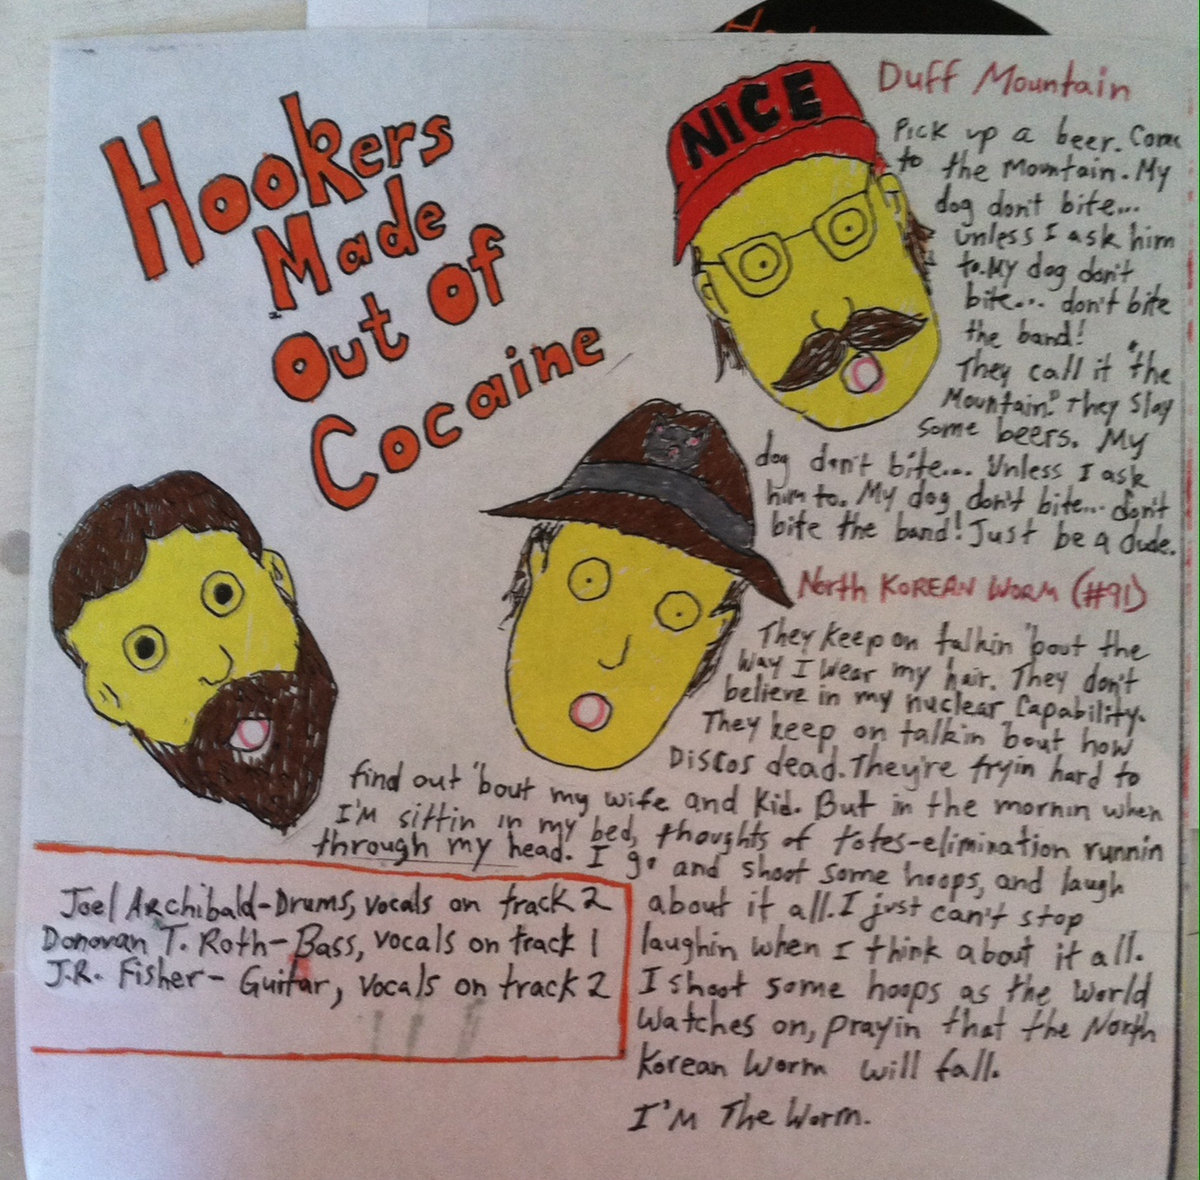 Hookers
Made
Out Of
Cocaine
NICE
Duff Mountain
Pick up a beer. Come
to the Mountain. My
dog don't bite...
unless I ask him
to. My dog don't
bite... don't bite
the band!
They call it "the
Mountain." They slay
some beers. My
dog don't bite... Unless I ask
him to. My dog don't bite... don't
bite the band! Just be a dude.
North KOREAN WORM (#91)
They keep on talkin 'bout the
way I wear my hair. They don't
believe in my nuclear capability.
They keep on talkin 'bout how
Discos dead. They're fryin hard to
find out 'bout my wife and kid. But in the mornin when
I'M sittin in my bed, thoughts of totes-elimination runnin
through my head. I go and shoot some hoops, and laugh
about it all. I just can't stop
laughin when I think about it all.
I shoot some hoops as the world
watches on, prayin that the North
Korean Worm will fall.
I'M The Worm.
Joel Archibald-Drums, vocals on track 2
Donovan T. Roth-Bass, vocals on track 1
J.R. Fisher- Guitar, vocals on track 2